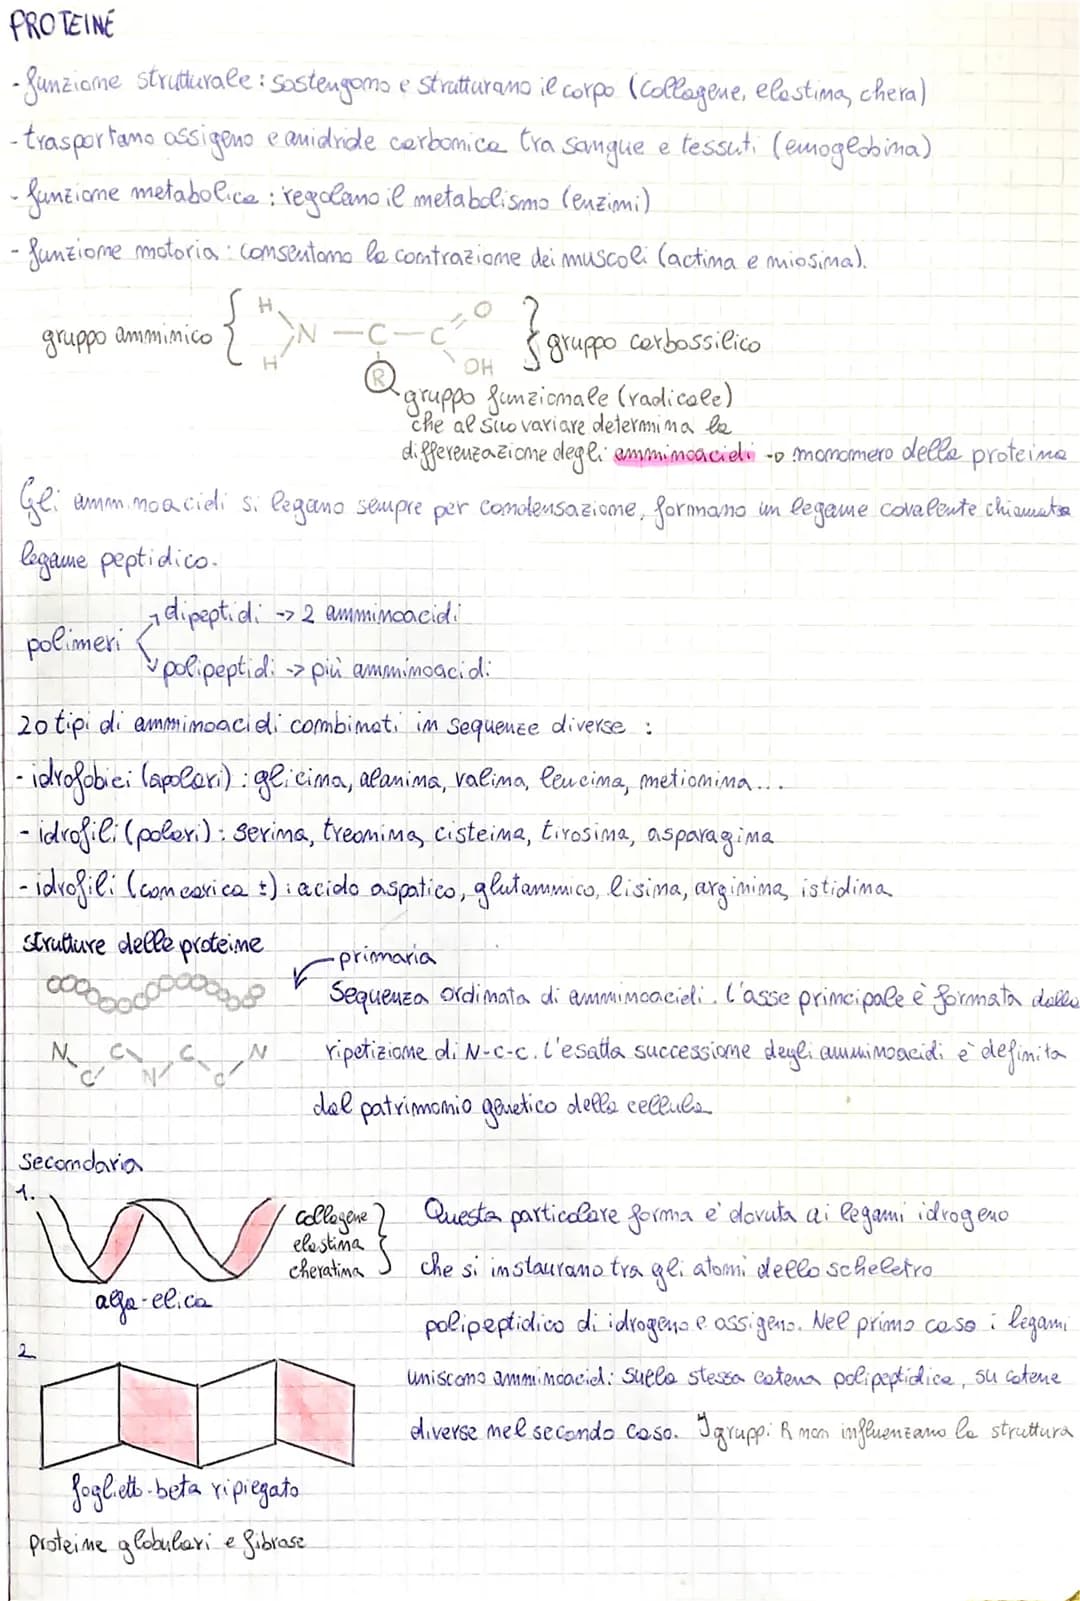 PROTEINE
- funzione strutturale : sostengono e strutturano il corpo (collagene, elastina, chera)
- trasportano ossigeno e anidride carbonica tra sangue e tessuti (emoglobina)
- funzione metabolica : regolano il metabolismo (enzimi)
- funzione motoria : consentono la contrazione dei muscoli (actina e miosina).
gruppo amminico { H H N — C — C O OH } gruppo carbossilico
R gruppo funzionale (radicale)
che al suo variare determina la
differenzazione degli amminoacidi -> monomero della proteina
Gli amminoacidi si legano sempre per condensazione, formano un legame covalente chiamato
legame peptidico.
dipeptidi -> 2 amminoacidi
polimeri
polipeptidi -> più amminoacidi
20 tipi di amminoacidi combinati in sequenze diverse :
- idrofobici (apolari) : glicina, alanina, valina, leucina, metionina...
- idrofili (polari) : serina, treonina, cisteina, tirosina, asparagina
- idrofili (con carica ±) : acido aspatico, glutammico, lisina, arginina, istidina
strutture delle proteine
primaria
Sequenza ordinata di amminoacidi. L'asse principale è formata dalla
N C C N C C N
ripetizione di N-C-C. L'esatta successione degli amminoacidi è definita
dal patrimonio genetico della cellula
Secondaria
1.
collagene
elastina
cheratina
alfa-elica
Questa particolare forma e' dovuta ai legami idrogeno
che si instaurano tra gli atomi dello scheletro
polipeptidico di idrogeno e ossigeno. Nel primo caso i legami
2
uniscono amminoacidi sulla stessa catena polipeptidica, su catene
diverse nel secondo caso. I gruppi R non influenzano la struttura
foglietto-beta ripiegato
proteine globulari e fibrose